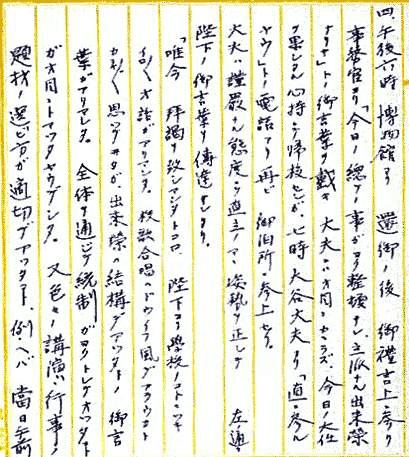 四、午後六時 博物館ヨリ 還御ノ後 御禮言上ニ参リ
事務官ヨリ「今日ノ總テノ事ガヨク整頓サレ、立派ナ出来榮
ナリキ」トノ御言葉ヲ戴キ 大夫ハ 今日ノ大任
ヲ果シタル心持ニテ帰校セシガ、七時 大谷大夫ヨリ「直ニ参レ
ヤウ」トノ電話アリ 再ビ 御泊所ニ参上セリ。
大夫ハ謹嚴ナル態度ニテ直立ノママ 姿勢ヲ正シテ 左ノ通リ
陛下ノ御言葉ヲ傳達サレタリ。
「唯今 拝謁ヲ致シマシタトコロ 陛下ヨリ學校ノコトニツキ
色々オ話ガアリマシタ。校歌合唱ハドウイフ風デアラウカト
思ツテヰタガ、出来榮ハ結構デアツタトノ 御言
葉ガアリマシタ。 全体ヲ通ジテ統制ガヨクトレテオツタト
又色々ノ講演ヤ行事ノ
題材ノ選ビ方ガ適切デアツタト、例ヘバ 當日午前